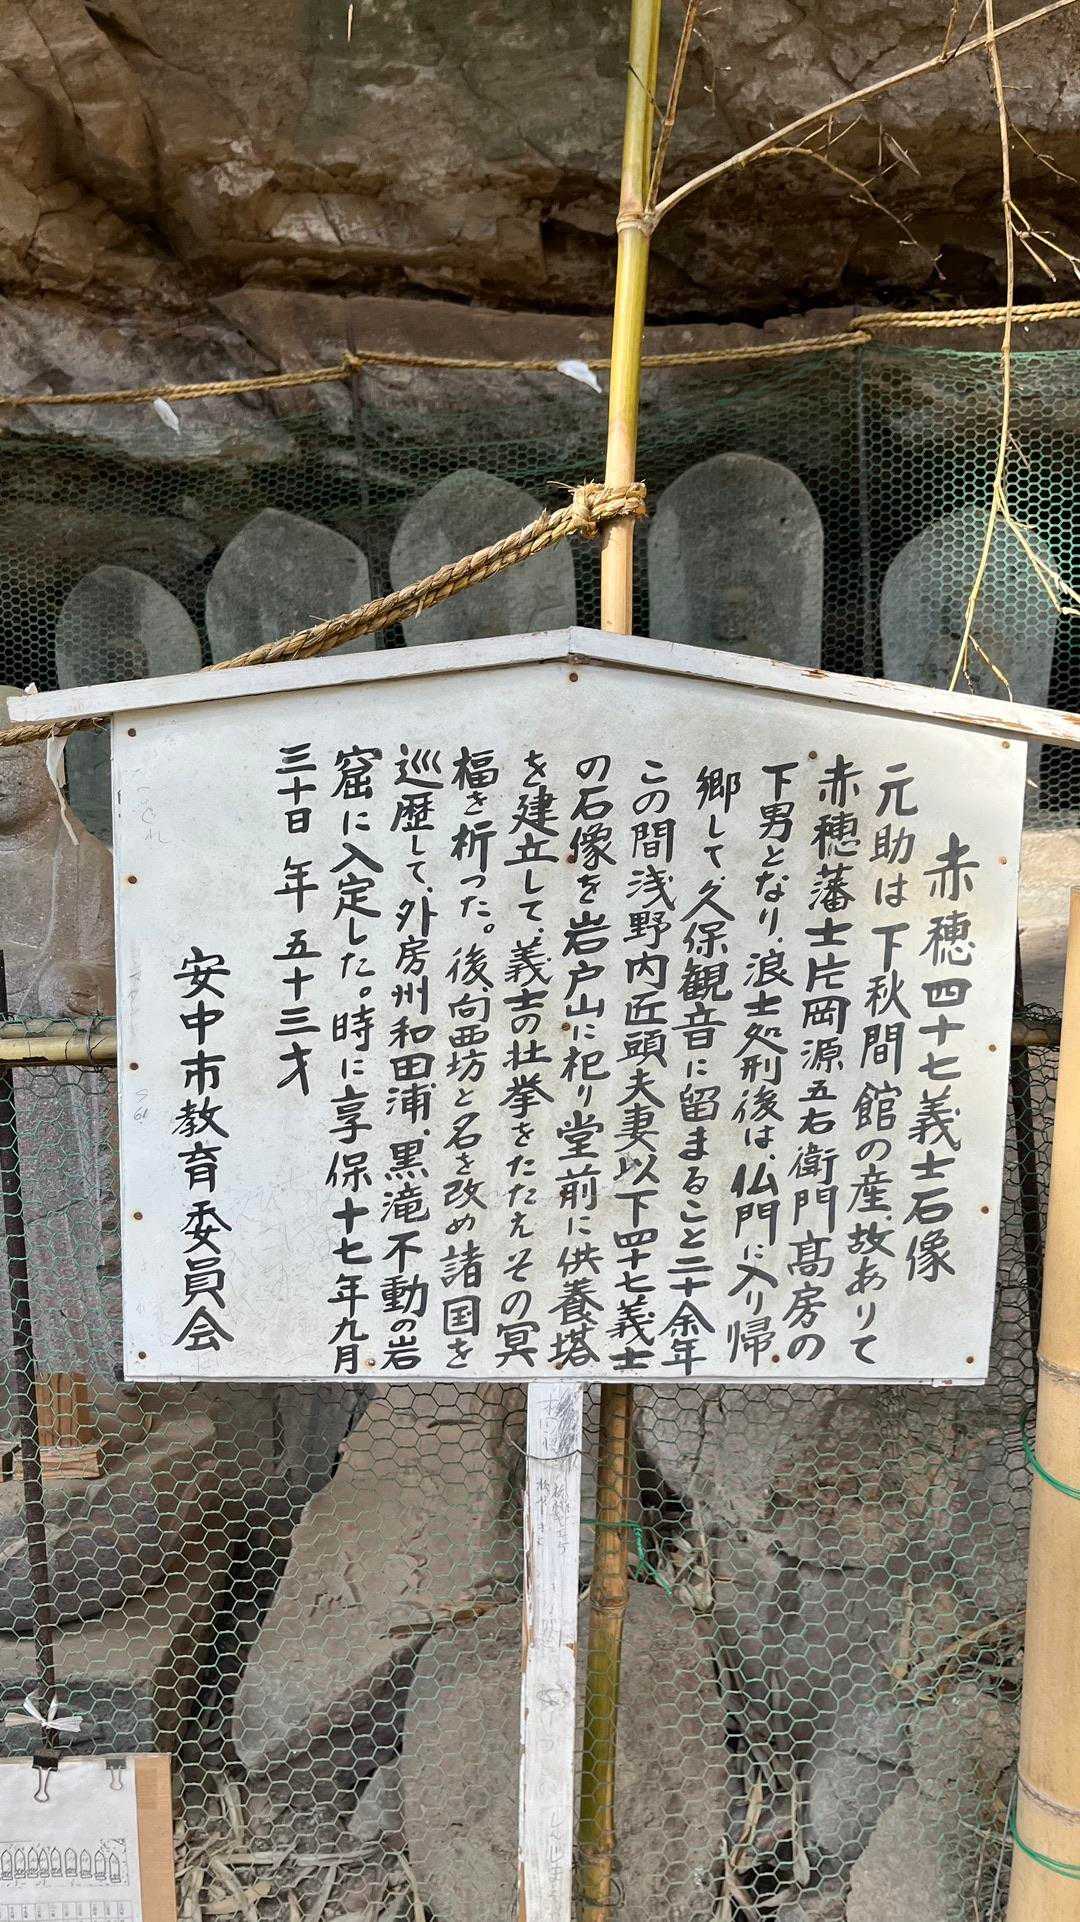 赤穂四十七義士石像
元助は下秋間館の産、故ありて
赤穂藩士片岡源五右衛門高房の
下男となり、浪士処刑後は、仏門に入り帰
郷して、久保観音に留まること二十余年
この間浅野内匠頭夫妻以下四十七義士
の石像を岩戸山に祀り堂前に供養塔
を建立して、義士の壮挙をたたえその冥
福を祈った。後、向西坊と名を改め諸国を
巡歴して、外房州和田浦、黒滝不動の岩
窟に入定した。時に享保十七年九月
三十日 年五十三才
安中市教育委員会